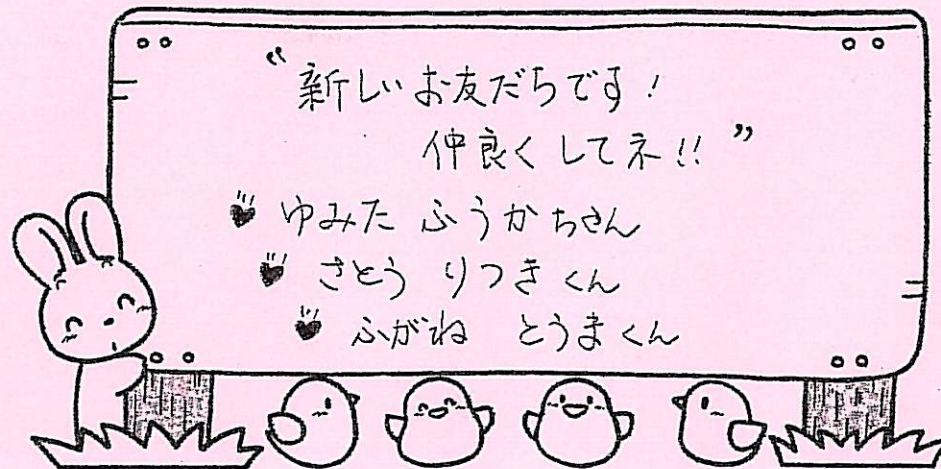 “新しいお友だちです！
仲良くしてネ!!”
ゆみた ふうかちゃん
さとう りつきくん
ふがね とうまくん